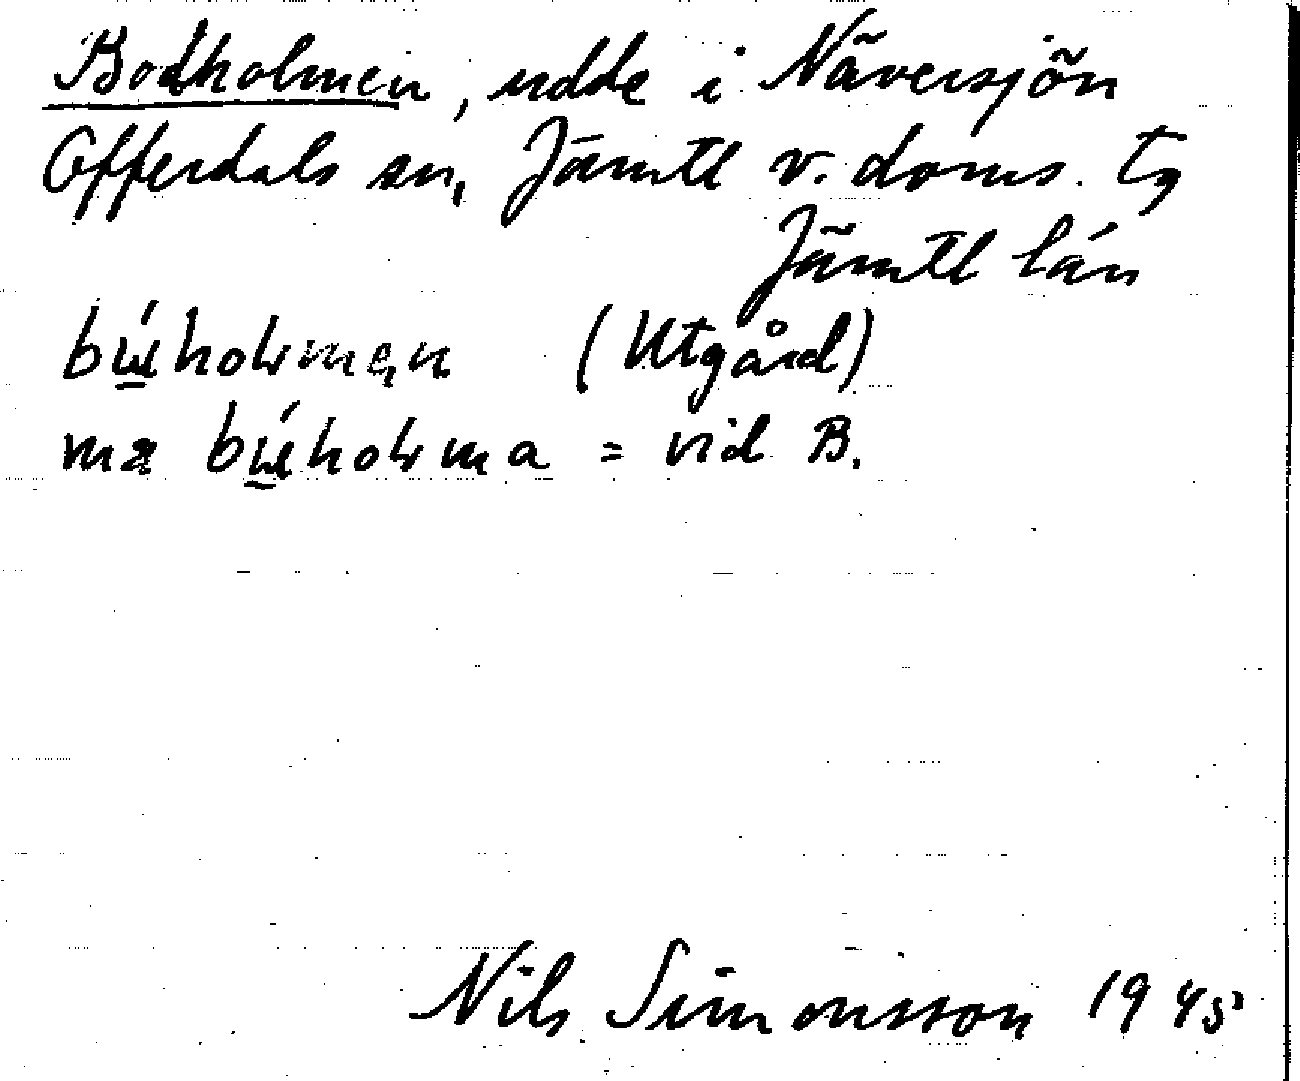 Bodholmen, udde i Näversjön
Offerdals sn, Jämtl v. doms. tg
Jämtl län
(Utgård)
= vid B.
Nils Simonsson 1945